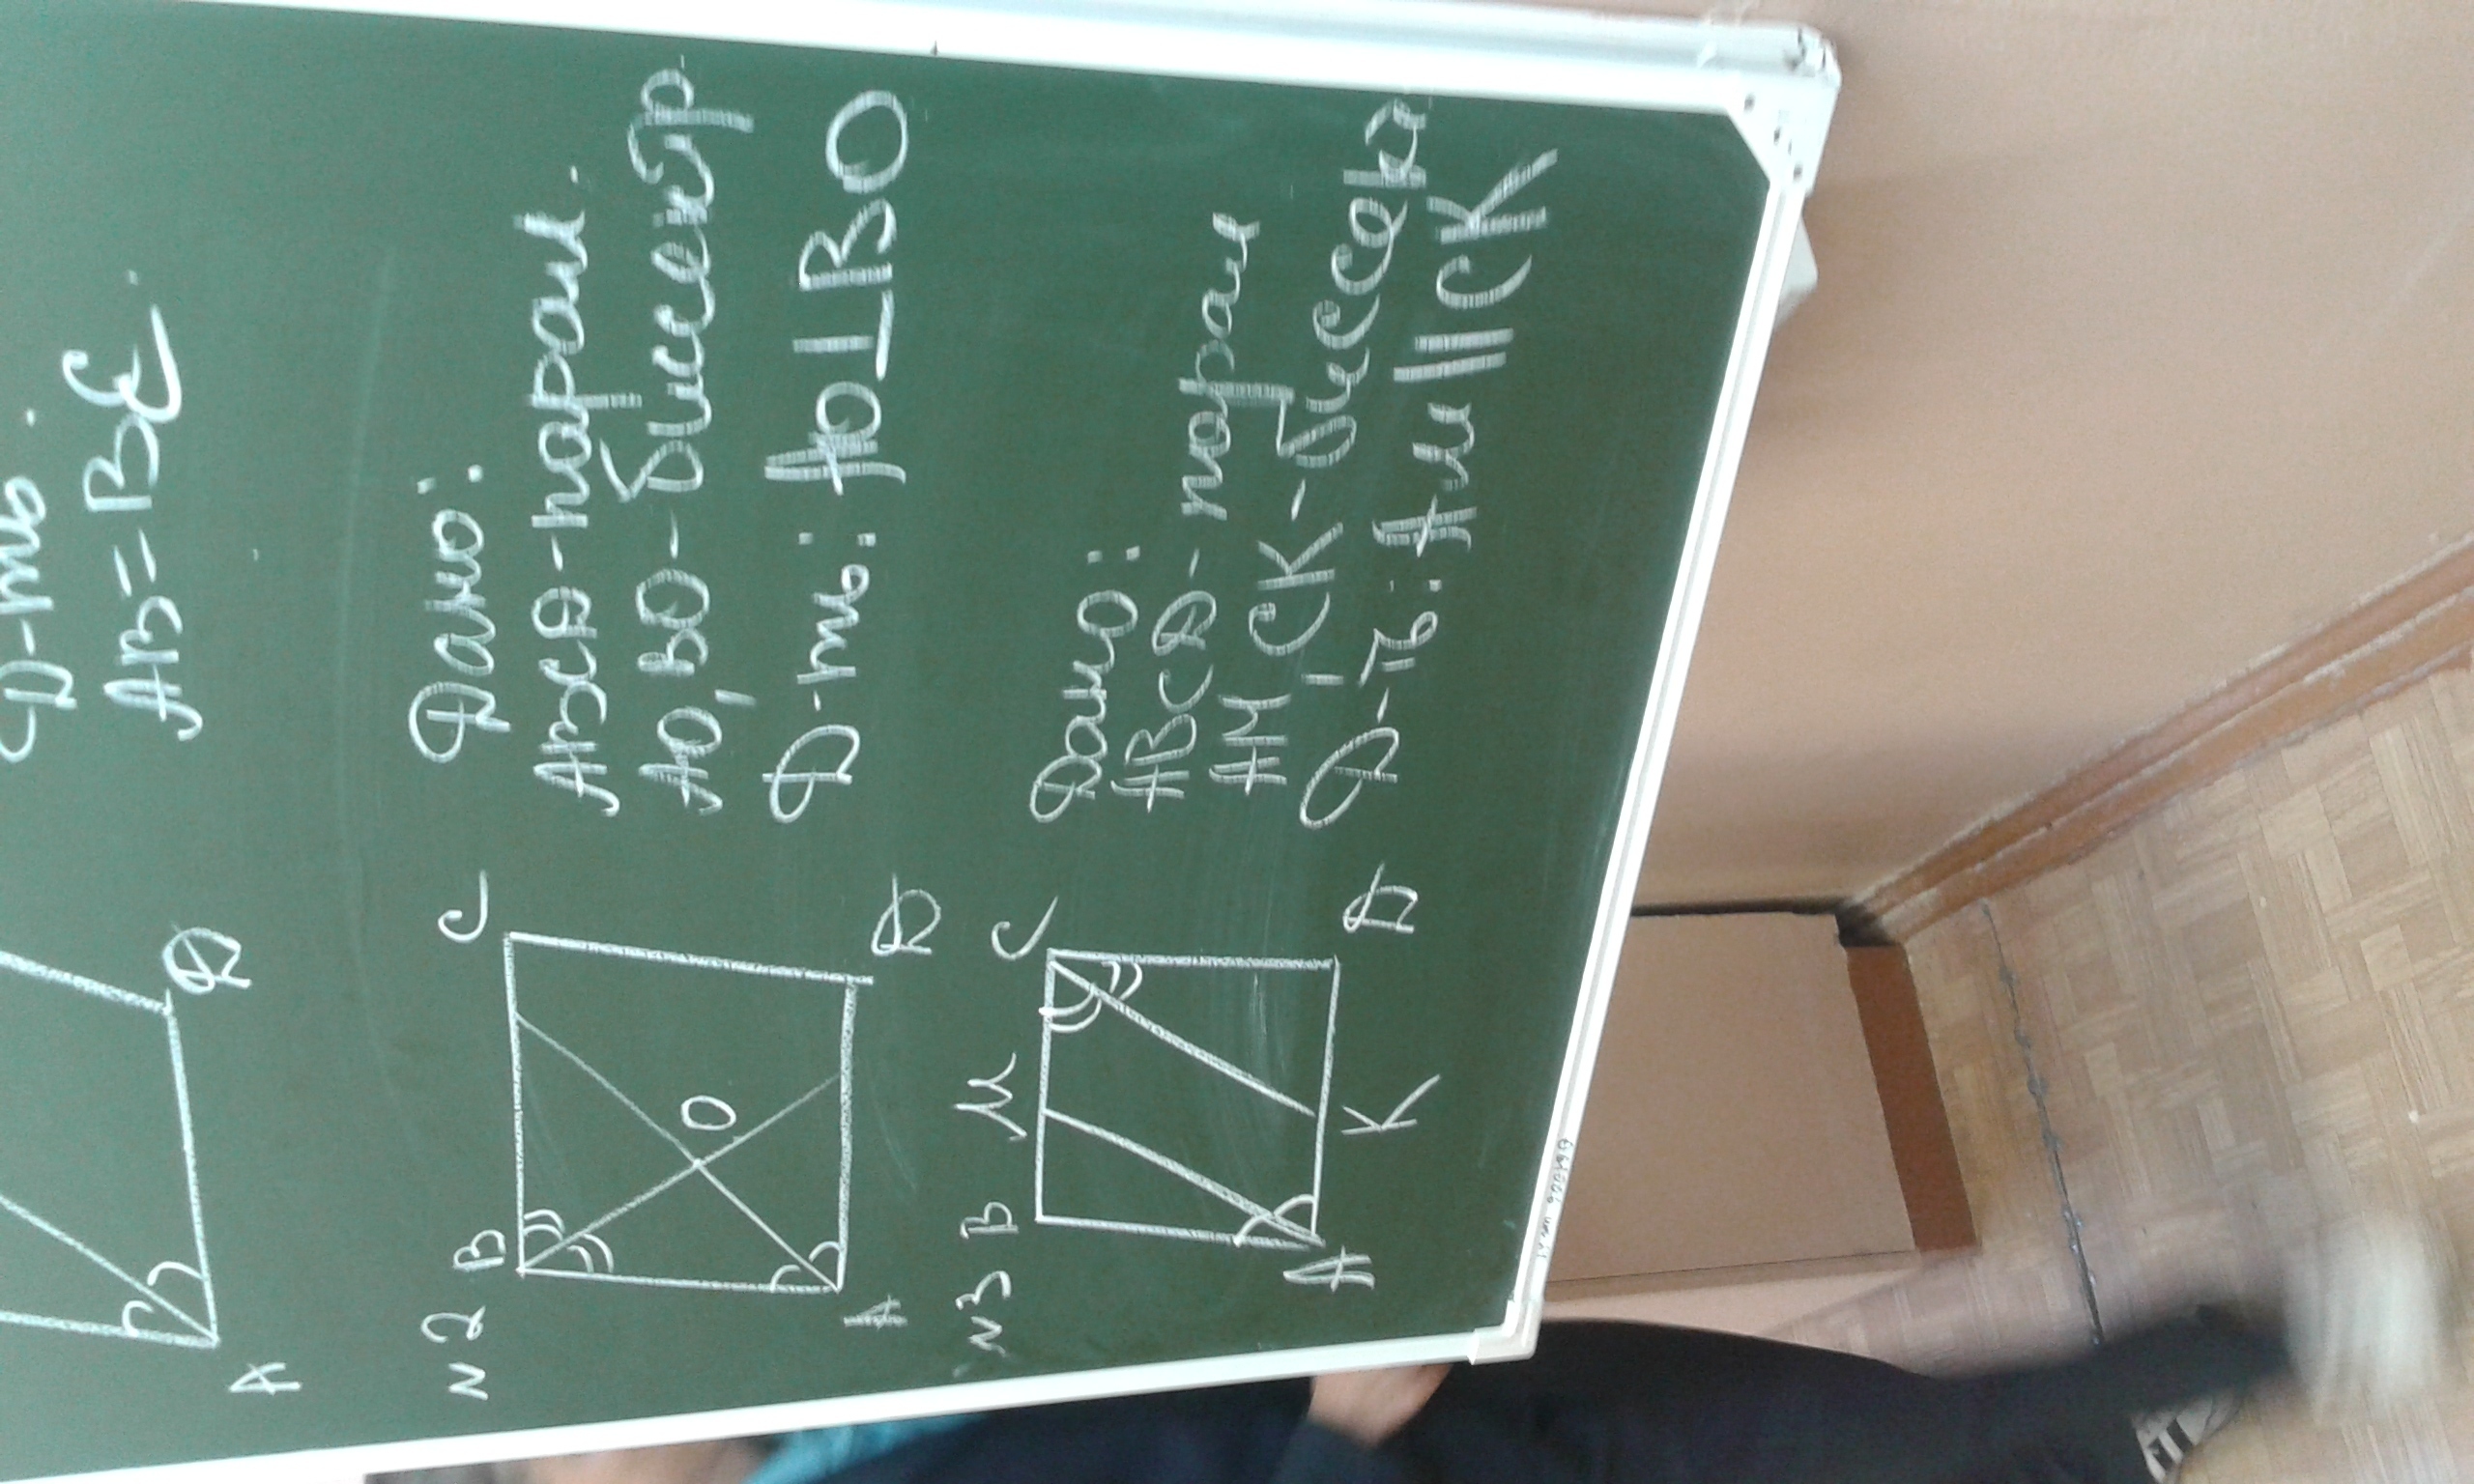 Д-ть.
AB=BE.
A
D
N2
B
C
O
A
D
Дано:
ABCD-парал.
AO, BO-биссектр.
Д-ть: AO⊥BO
N3
B
M
C
A
K
D
Дано:
ABCD-парал
AM, CK-биссек
Д-ть: AM||CK